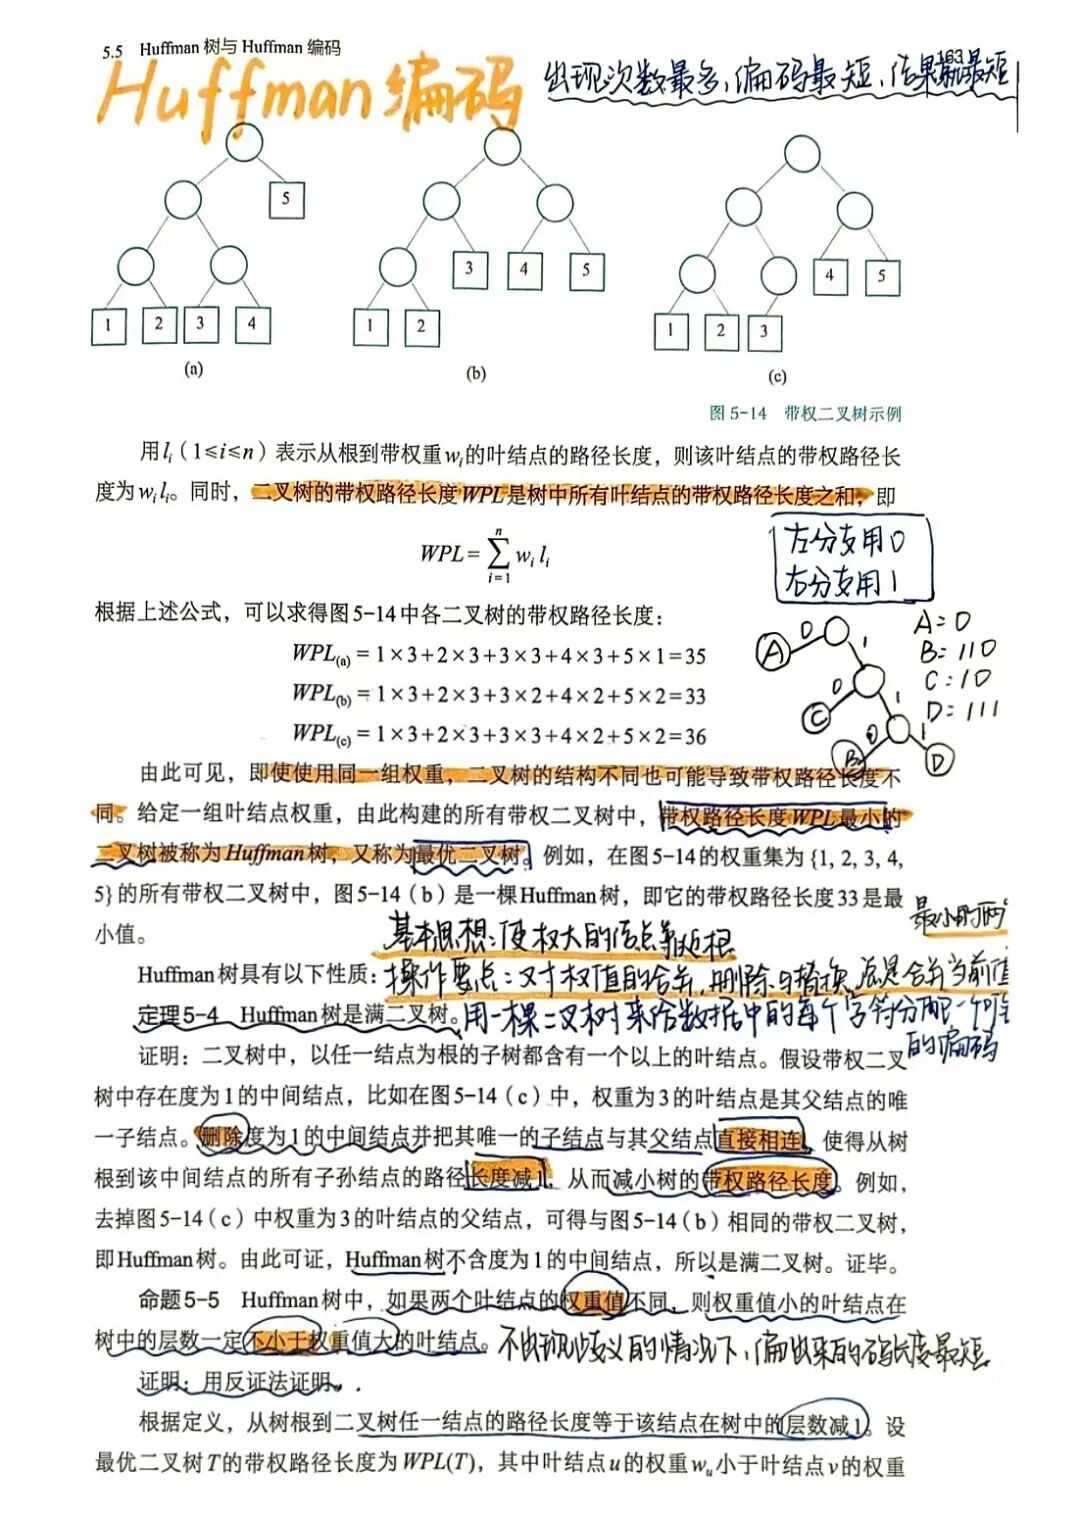 5.5 Huffman 树与 Huffman 编码
163
Huffman 编码
出现次数最多,编码最短,结果就最短
5
3 4 5
4 5
1 2 3 4
1 2
1 2 3
(a)
(b)
(c)
图 5-14 带权二叉树示例
用 lᵢ(1≤i≤n)表示从根到带权重 wᵢ 的叶结点的路径长度,则该叶结点的带权路径长
度为 wᵢ lᵢ。同时,二叉树的带权路径长度 WPL 是树中所有叶结点的带权路径长度之和,即
左分支用0
右分支用1
WPL = ∑ⁿᵢ₌₁ wᵢ lᵢ
根据上述公式,可以求得图 5-14 中各二叉树的带权路径长度:
WPL(a) = 1×3+2×3+3×3+4×3+5×1=35
WPL(b) = 1×3+2×3+3×2+4×2+5×2=33
WPL(c) = 1×3+2×3+3×3+4×2+5×2=36
A=0
B=110
C:10
D=111
A 0 1
C 0 1
B 0 1 D
由此可见,即使使用同一组权重,二叉树的结构不同也可能导致带权路径长度不
同。给定一组叶结点权重,由此构建的所有带权二叉树中,带权路径长度 WPL 最小的
二叉树被称为 Huffman 树,又称为最优二叉树。例如,在图 5-14 的权重集为 {1, 2, 3, 4,
5} 的所有带权二叉树中,图 5-14(b)是一棵 Huffman 树,即它的带权路径长度 33 是最
小值。
基本思想:使权大的结点靠近根
最小的两
Huffman 树具有以下性质:
操作要点:对权值的合并、删除与替换,总是合并当前值
定理 5-4 Huffman 树是满二叉树。
用一棵二叉树来给数据中的每个字符分配一个
的编码
证明:二叉树中,以任一结点为根的子树都含有一个以上的叶结点。假设带权二叉
树中存在度为 1 的中间结点,比如在图 5-14(c)中,权重为 3 的叶结点是其父结点的唯
一子结点。删除度为 1 的中间结点并把其唯一的子结点与其父结点直接相连,使得从树
根到该中间结点的所有子孙结点的路径长度减 1,从而减小树的带权路径长度。例如,
去掉图 5-14(c)中权重为 3 的叶结点的父结点,可得与图 5-14(b)相同的带权二叉树,
即 Huffman 树。由此可证,Huffman 树不含度为 1 的中间结点,所以是满二叉树。证毕。
命题 5-5 Huffman 树中,如果两个叶结点的权重值不同,则权重值小的叶结点在
树中的层数一定不小于权重值大的叶结点。
不出现歧义的情况下,编出来的码长度最短
证明:用反证法证明。
根据定义,从树根到二叉树任一结点的路径长度等于该结点在树中的层数减 1。设
最优二叉树 T 的带权路径长度为 WPL(T),其中叶结点 u 的权重 wᵤ 小于叶结点 v 的权重